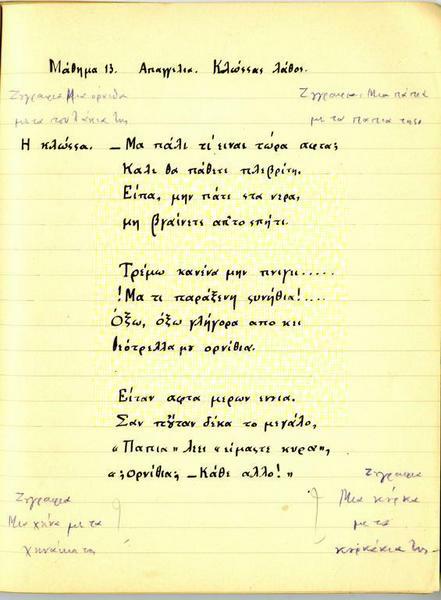 Μάθημα 13. Απαγγελια. Κλώσσας λάθος.
Ζωγραφια Μια ορνιθα
με τα πουλάκια της
Ζωγραφια. Μια πάπια
με τα παπια της.
Η κλώσσα. – Μα πάλι τί είναι τώρα αφτα;
Καλε θα πάθετε πλεβρίτη.
Είπα, μην πάτε στα νερα,
μη βγαίνετε απ'το σπήτι.
Τρέμω κανένα μην πνιγει.....
!Μα τι παράξενη συνήθια!....
Όξω, όξω γλήγορα απο κει
θεότρελλα μυ ορνίθια.
Είταν αφτα μερων εννια.
Σαν πȣ̃ταν δέκα το μεγάλο,
«Παπια» λεει «είμαστε κυρα»,
«;Ορνίθια; – Κάθε αλλο!»
Ζωγραφια
Μια χήνα με τα
χηνάκια της
Ζωγραφια
Μια κύρκα
με τα
κυρκάκια της